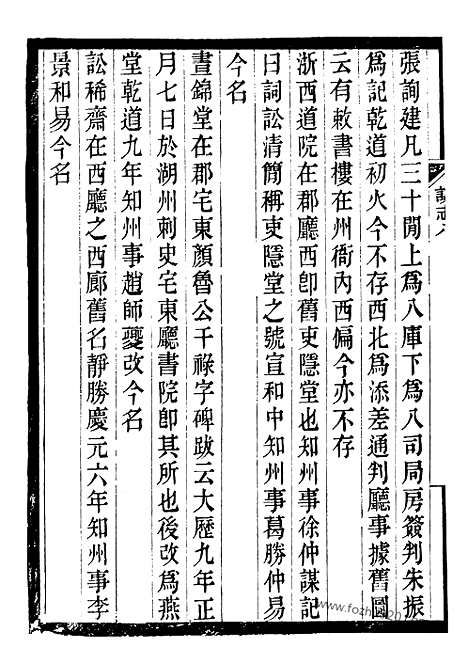 張詢建凡三十閒上爲八庫下爲八司局房簽判朱振
爲記乾道初火今不存西北爲添差通判廳事據舊圖
云有敕書樓在州衙內西偏今亦不存
浙西道院在郡廳西卽舊吏隱堂也知州事徐仲謀記
曰詞訟清簡稱吏隱堂之號宣和中知州事葛勝仲易
今名
晝錦堂在郡宅東顏魯公干祿字碑跋云大歷九年正
月七日於湖州刺史宅東廳書院卽其所也後改爲燕
堂乾道九年知州事趙師夔改今名
訟稀齋在西廳之西廊舊名靜勝慶元六年知州事李
景和易今名